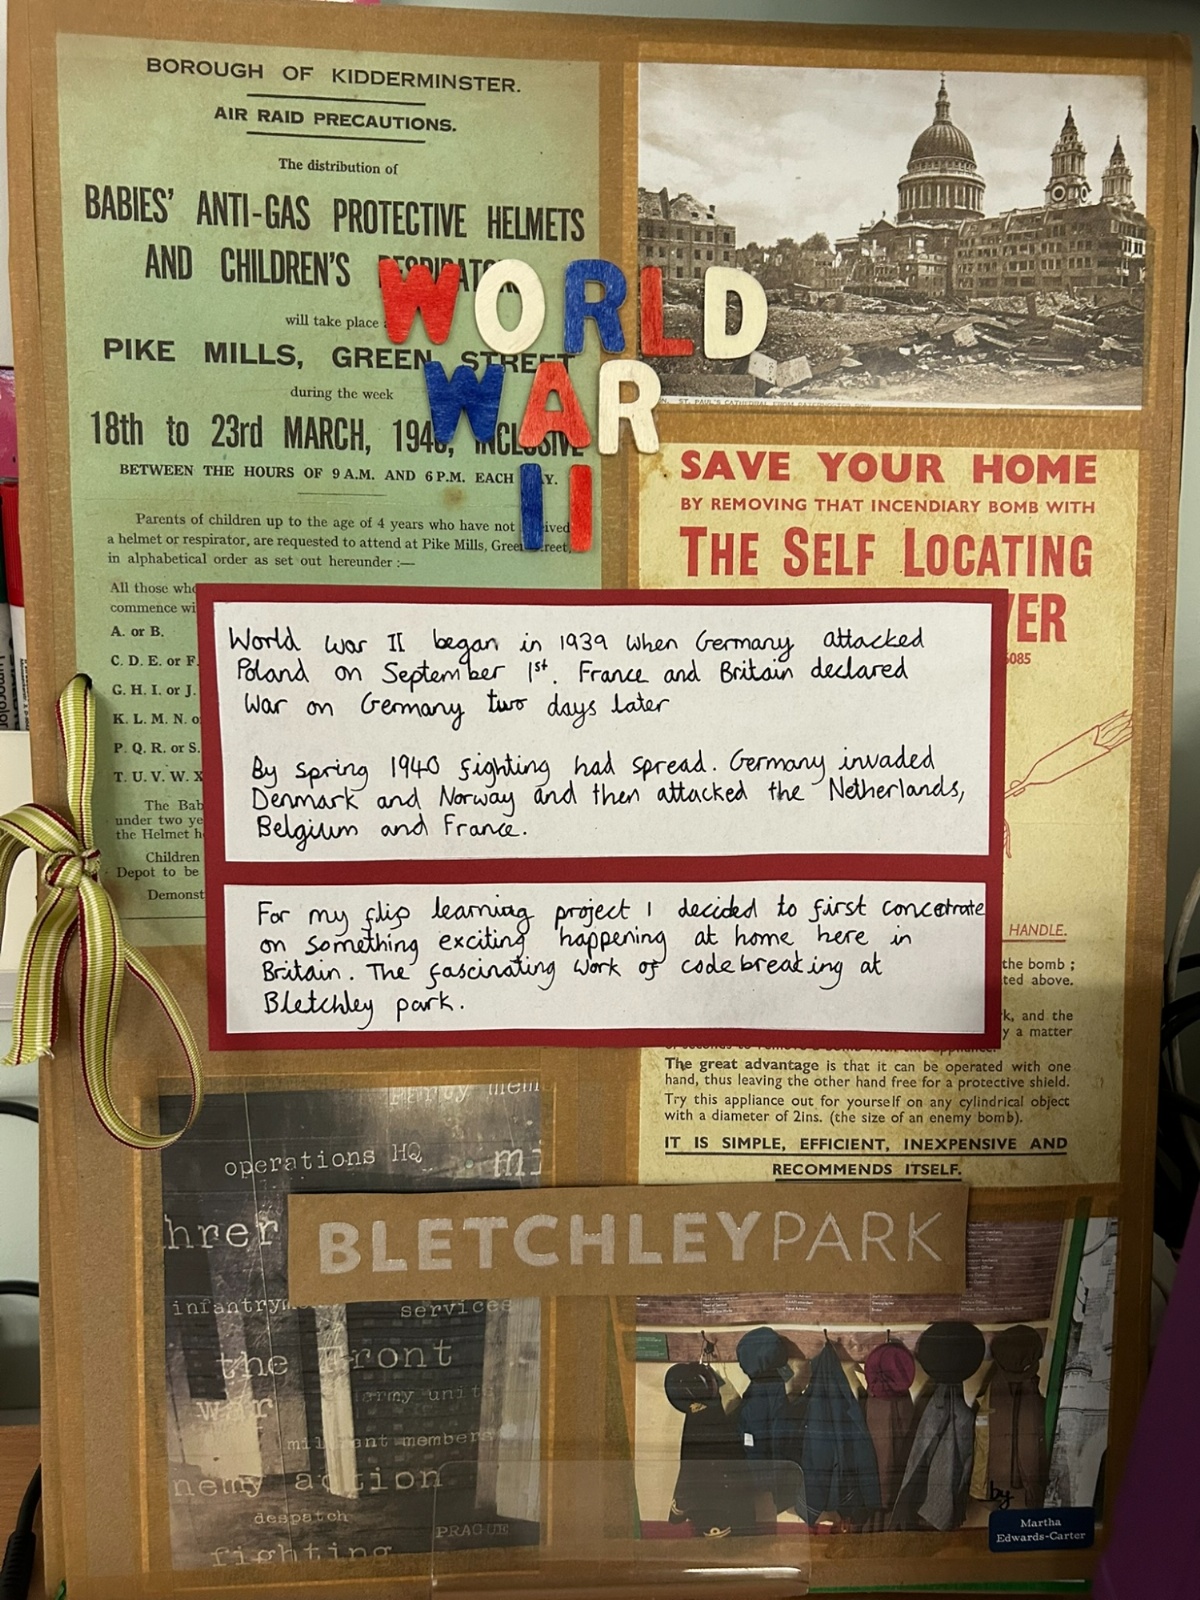 BOROUGH OF KIDDERMINSTER.
AIR RAID PRECAUTIONS.
The distribution of
BABIES' ANTI-GAS PROTECTIVE HELMETS
AND CHILDREN'S
will take place
PIKE MILLS, GREEN STREET
during the week
18th to 23rd MARCH, 1940, INCLUSIVE
BETWEEN THE HOURS OF 9 A.M. AND 6 P.M. EACH
Parents of children up to the age of 4 years who have not
a helmet or respirator, are requested to attend at Pike Mills, Green Street,
in alphabetical order as set out hereunder :—
All those
commence
A. or B.
C. D. E. or F.
G. H. I. or J.
K. L. M. N.
P. Q. R. or S.
T. U. V. W. X
The
under two
the Helmet
Children
Depot to be
WORLD
WAR
II
ST. PAUL'S CATHEDRAL
SAVE YOUR HOME
BY REMOVING THAT INCENDIARY BOMB WITH
THE SELF LOCATING
HANDLE.
the bomb ;
above.
and the
a matter
The great advantage is that it can be operated with one
hand, thus leaving the other hand free for a protective shield.
Try this appliance out for yourself on any cylindrical object
with a diameter of 2ins. (the size of an enemy bomb).
IT IS SIMPLE, EFFICIENT, INEXPENSIVE AND
RECOMMENDS ITSELF.
World War II began in 1939 when Germany attacked
Poland on September 1st. France and Britain declared
War on Germany two days later
By spring 1940 fighting had spread. Germany invaded
Denmark and Norway and then attacked the Netherlands,
Belgium and France.
For my flip learning project I decided to first concetrate
on something exciting happening at home here in
Britain. The fascinating work of codebreaking at
Bletchley park.
operations HQ
BLETCHLEYPARK
services
the Front
army units
war
members
action
despatch
PRAGUE
fighting
by
Martha
Edwards-Carter